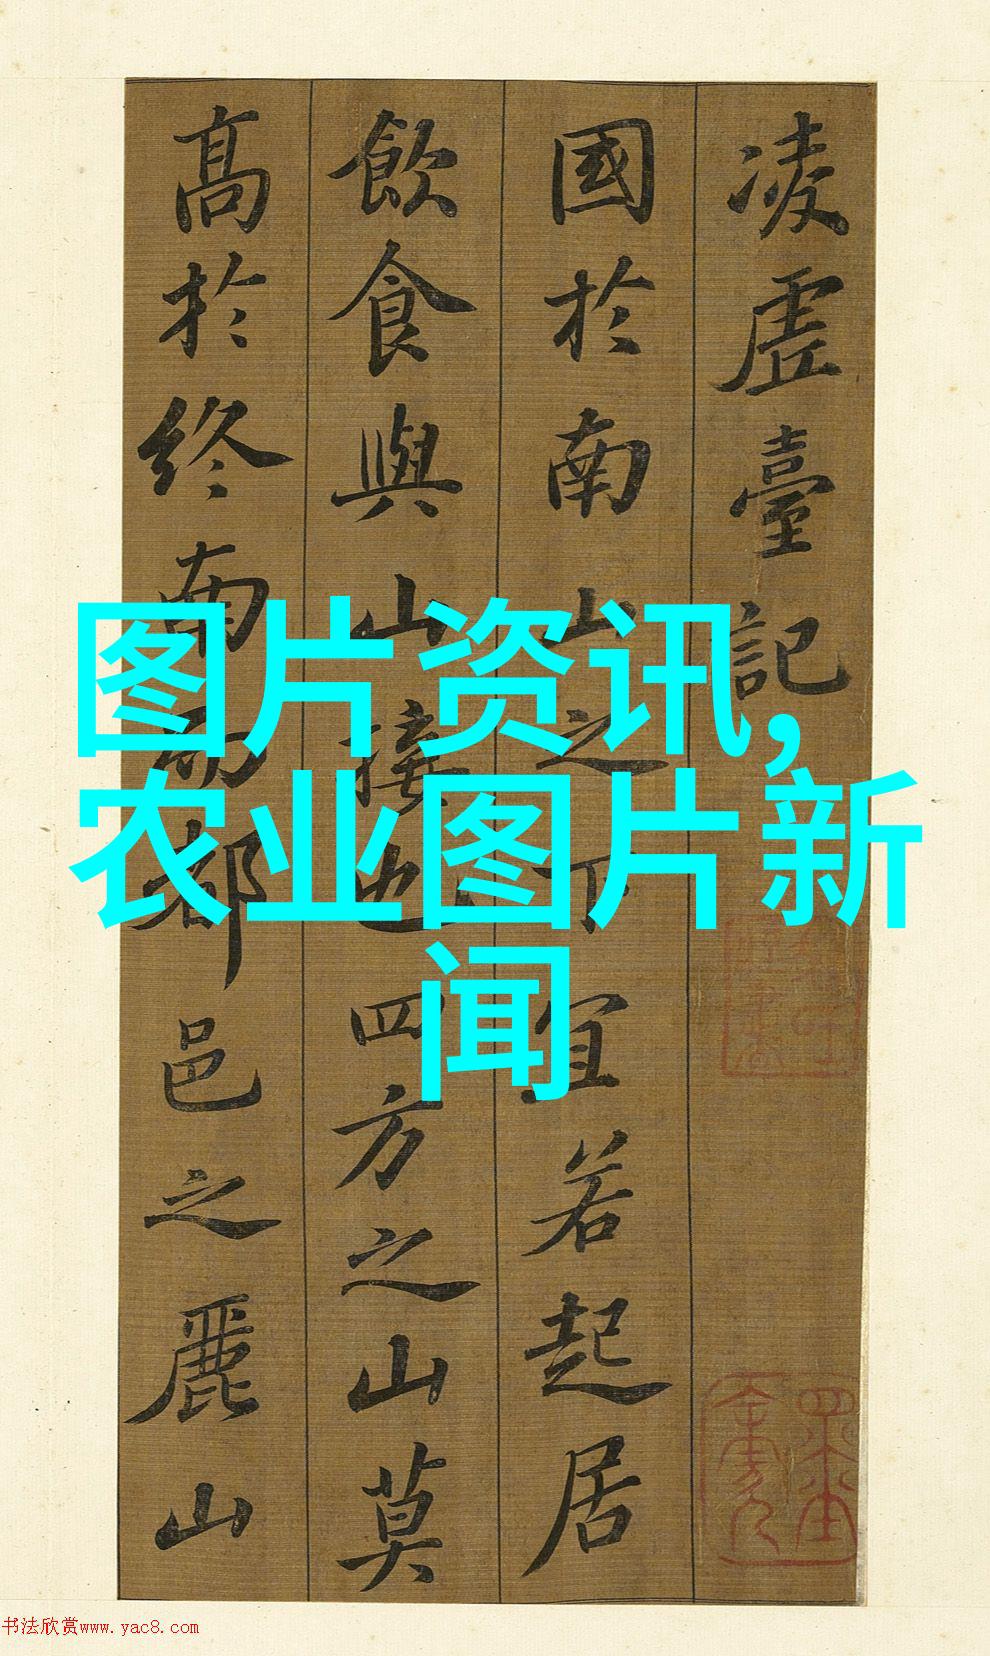 凌虛臺記
國於南山之下宜若起居
飲食與山接也四方之山莫
高於終南而都邑之麗山
图片资讯,
农业图片新
闻
书法欣赏www.yac8.com